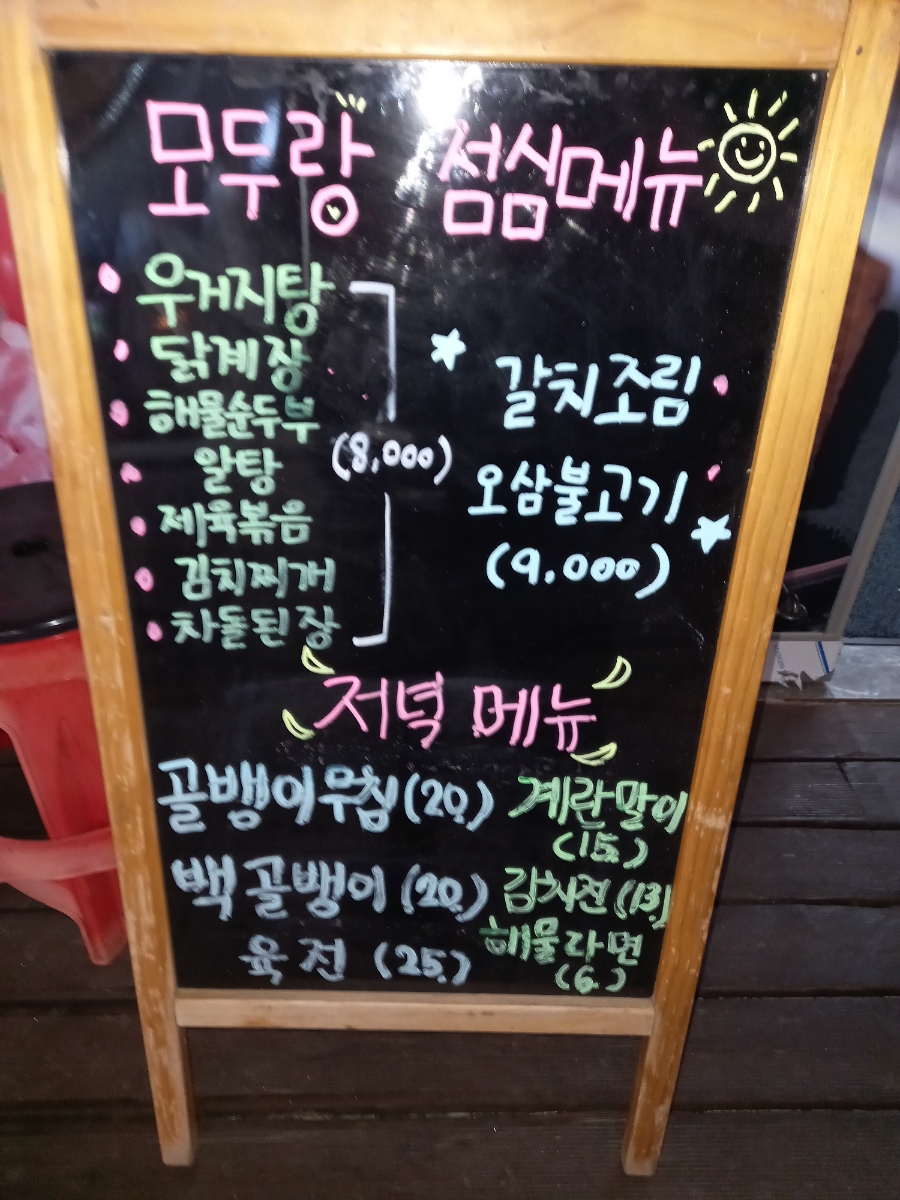 모두랑 점심메뉴
우거지탕
닭계장
해물순두부
알탕
제육볶음
김치찌개
차돌된장
(8,000)
갈치조림
오삼불고기
(9.000)
저녁 메뉴
골뱅이무침(20.)
백골뱅이 (20.)
육전 (25.)
계란말이
(15.)
김치전(13.)
해물라면
(6.)